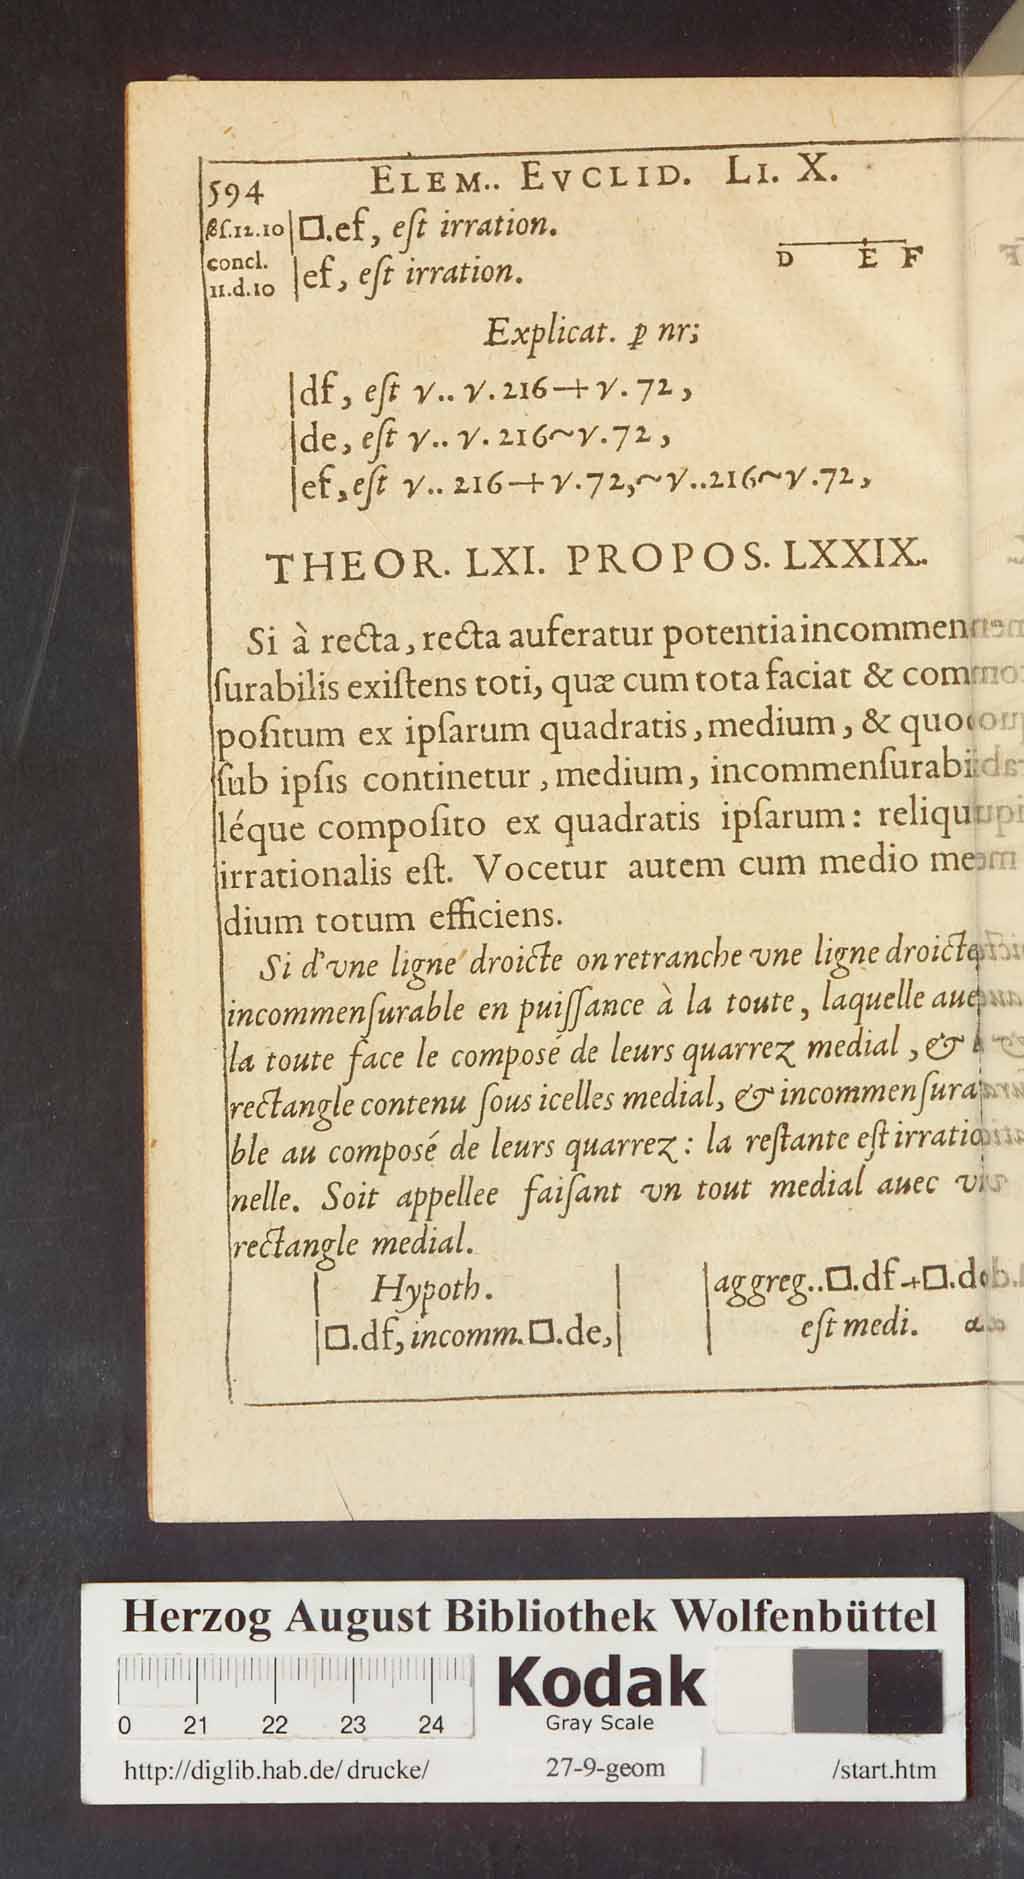 594 ELEM.. EVCLID. LI. X.
βſ.12.10 |□.ef, eſt irration.
concl.
11.d.10 |ef, eſt irration.
D E F
Explicat. p nr;
|df, eſt γ.. γ.216+γ.72,
|de, eſt γ.. γ.216~γ.72,
|ef, eſt γ.. 216+γ.72,~γ..216~γ.72,
THEOR. LXI. PROPOS. LXXIX.
Si à recta, recta auferatur potentia incommen
ſurabilis exiſtens toti, quæ cum tota faciat & com
poſitum ex ipſarum quadratis, medium, & quo
ſub ipſis continetur, medium, incommenſurabi
léque compoſito ex quadratis ipſarum: reliqu
irrationalis eſt. Vocetur autem cum medio me
dium totum efficiens.
Si d'vne ligne droicte on retranche vne ligne droicte
incommenſurable en puiſſance à la toute, laquelle aue
la toute face le composé de leurs quarrez medial, &
rectangle contenu ſous icelles medial, & incommenſura
ble au composé de leurs quarrez: la reſtante eſt irratio
nelle. Soit appellee faiſant vn tout medial auec v
rectangle medial.
| Hypoth. |
|□.df, incomm.□.de,|
|aggreg..□.df+□.de
| eſt medi. α
Herzog August Bibliothek Wolfenbüttel
0 21 22 23 24
Kodak
Gray Scale
http://diglib.hab.de/drucke/ 27-9-geom /start.htm